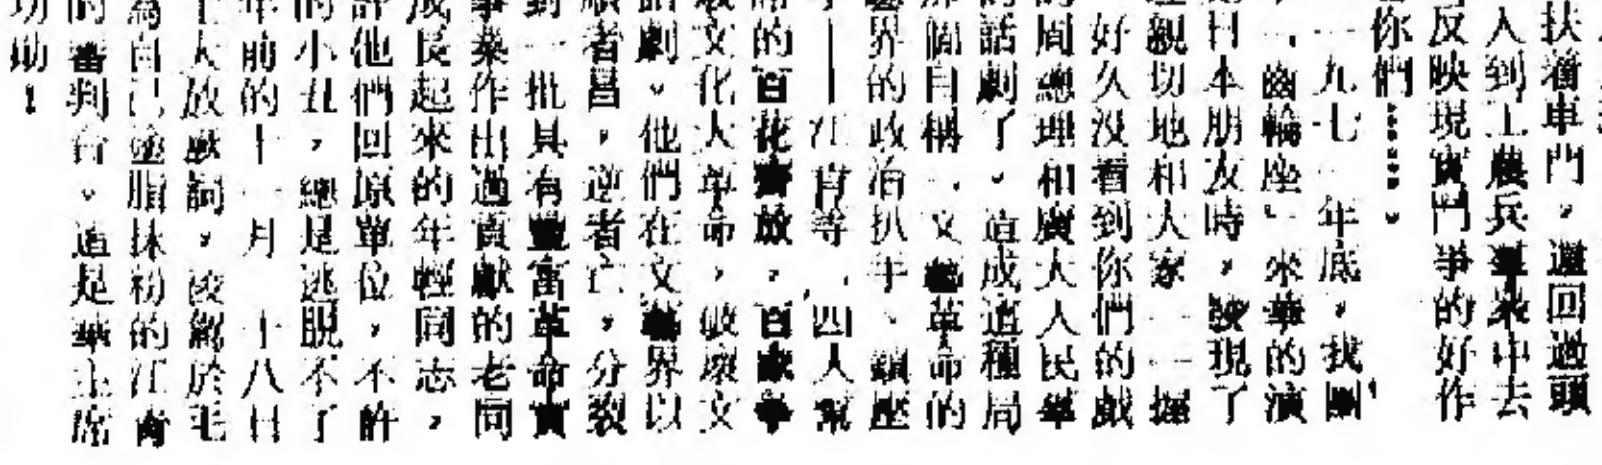 扶着車門，還回過頭
入到工農兵羣衆中去
反映現實鬥爭的好作
你們……。
一九七一年底，我團
「齒輪座」來華的演
日本朋友時，發現了
親切地和大家一一握
好久没看到你們的戲
周總理和廣大人民羣
話劇了。造成這種局
個自稱「文藝革命的
界的政治扒手、鎮壓
——江青等「四人幫
的百花齊放，百家爭
文化大革命，破壞文
劇。他們在文藝界以
者昌，逆者亡，分裂
一批具有豐富革命實
業作出過貢獻的老同
長起來的年輕同志，
他們回原單位，不許
小丑，總是逃脫不了
前的十一月二十八日
大放厥詞，
於毛
自己塗脂抹粉的江青
審判台。這是華主席
助！